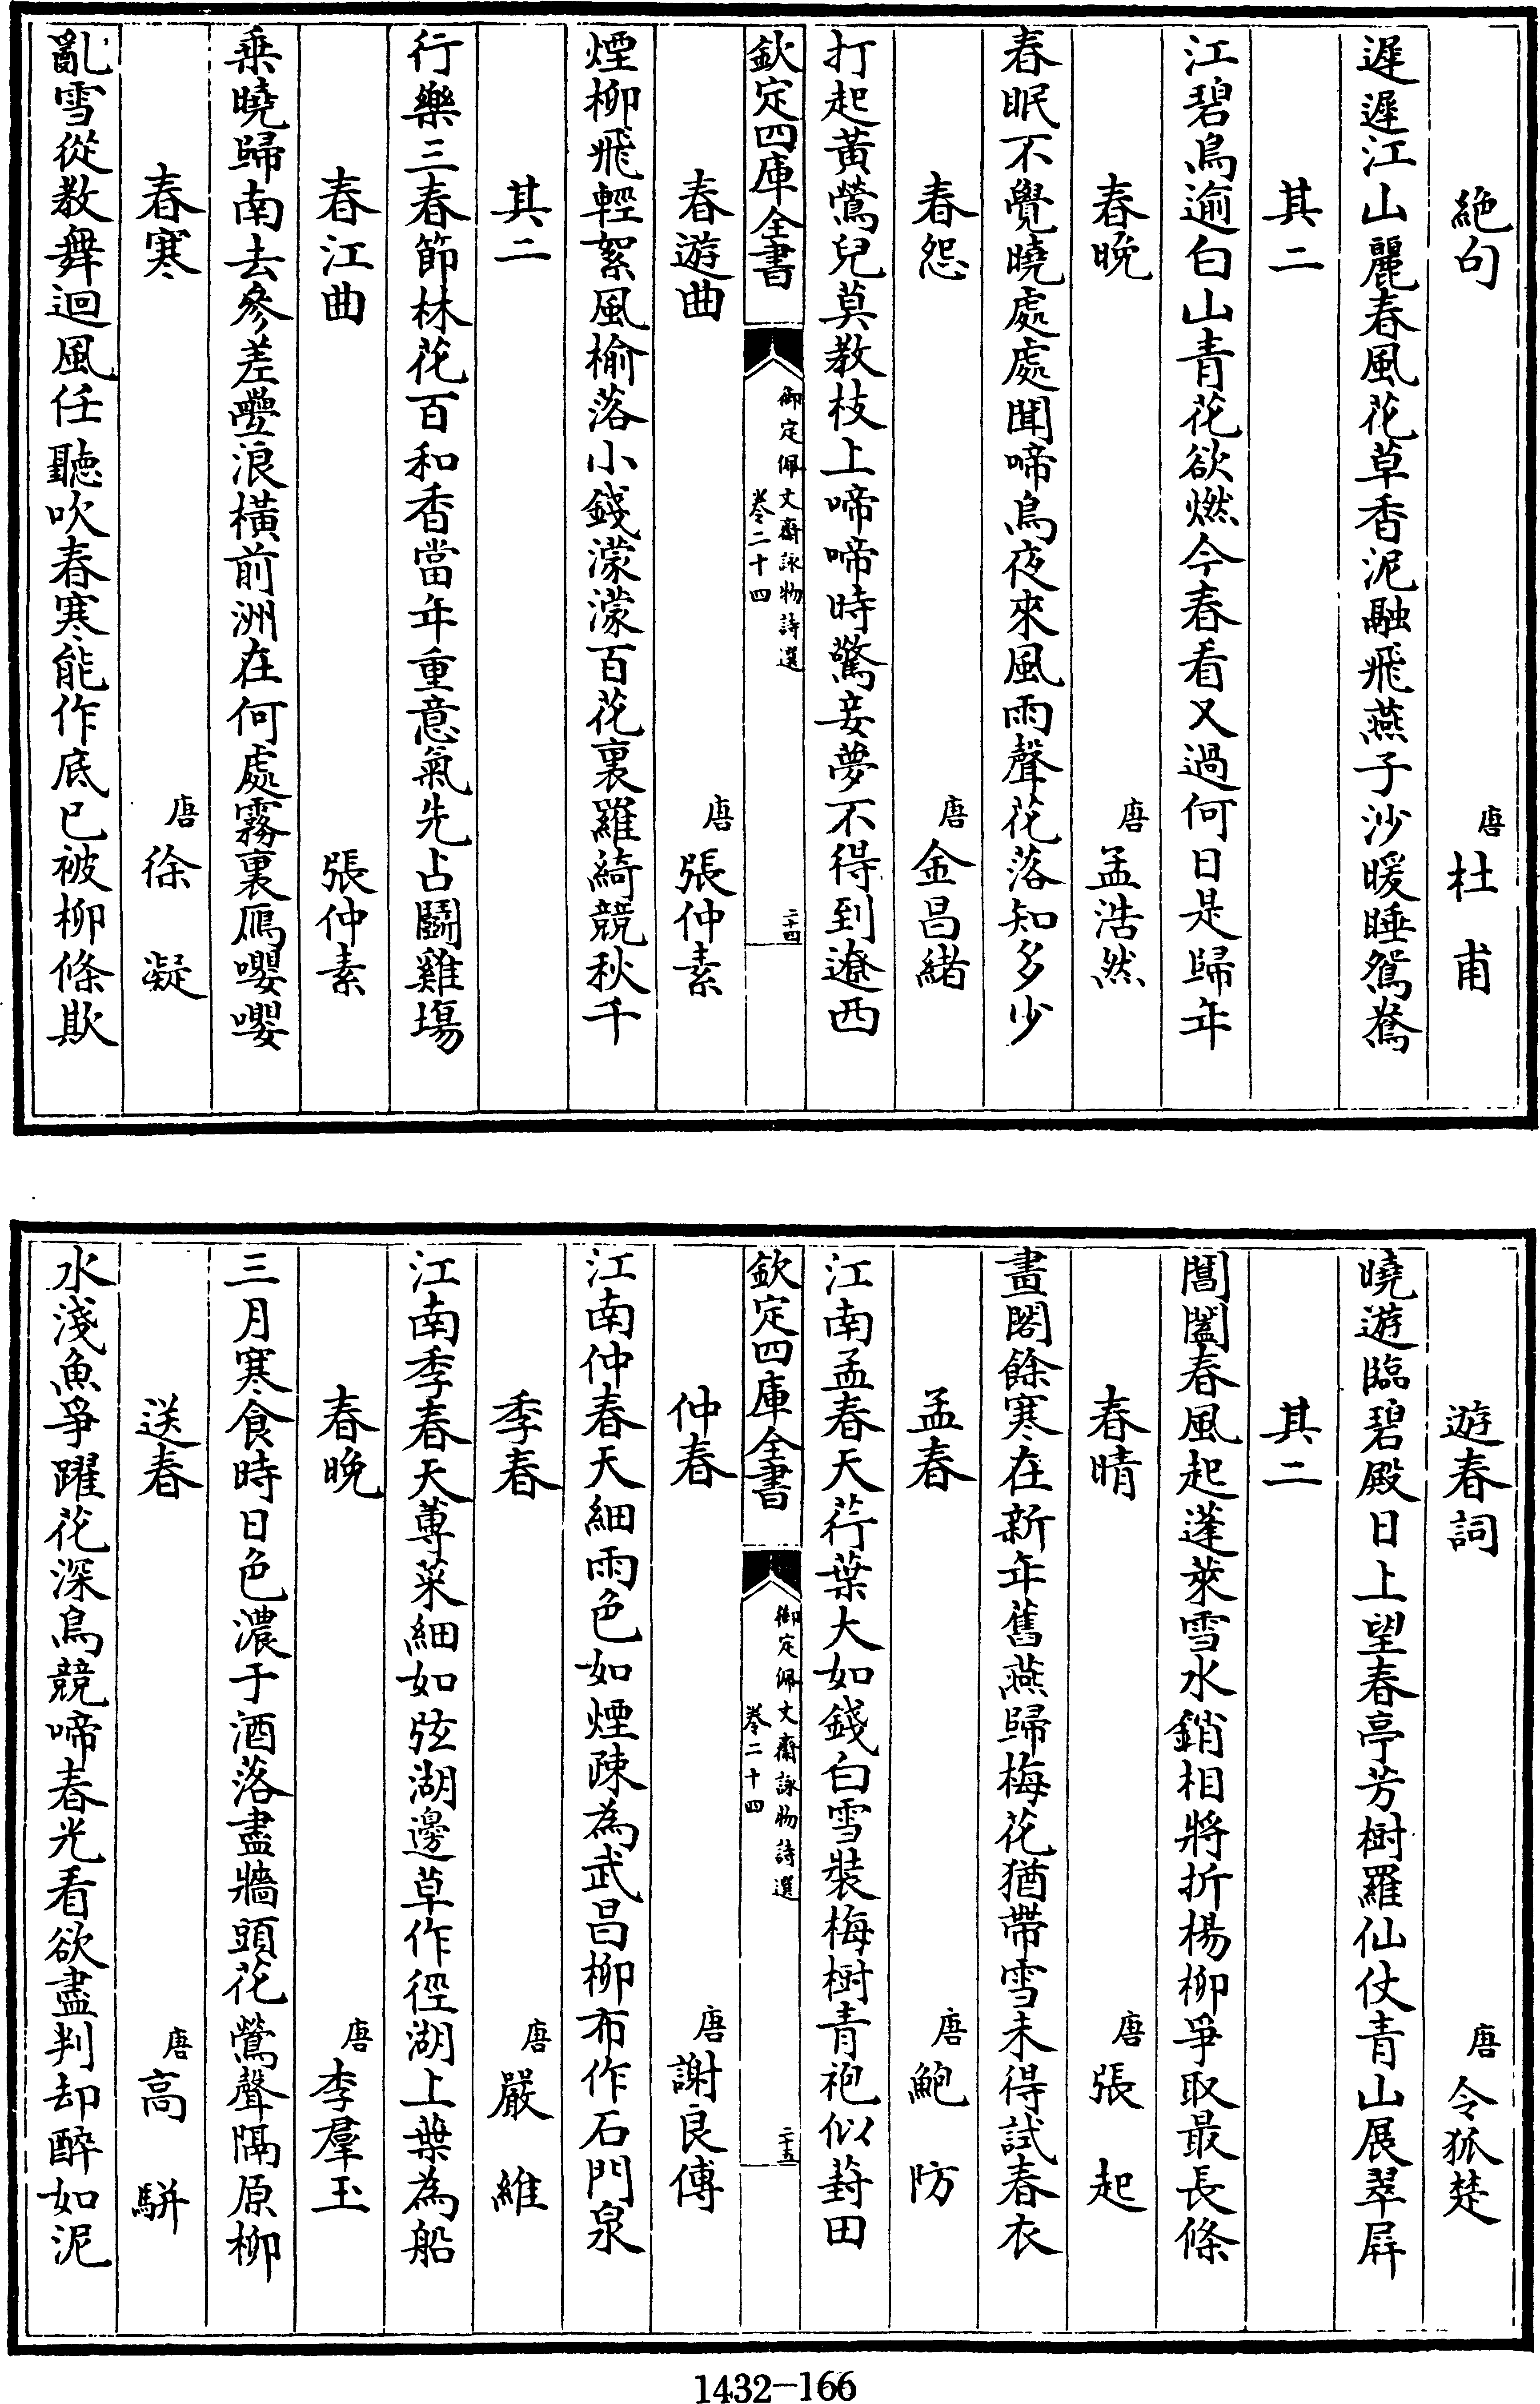 絶句 唐 杜甫
遲遲江山麗春風花草香泥融飛燕子沙暖睡鴛鴦
其二
江碧鳥逾白山青花欲燃今春看又過何日是歸年
春晩 唐 孟浩然
春眠不覺曉處處聞啼鳥夜來風雨聲花落知多少
春怨 唐 金昌緒
打起黃鶯兒莫教枝上啼啼時驚妾夢不得到遼西
欽定四庫全書
御定佩文齋詠物詩選
卷二十四
二十四
春遊曲 唐 張仲素
煙柳飛輕絮風榆落小錢濛濛百花裏羅綺競秋千
其二
行樂三春節林花百和香當年重意氣先占鬭雞塲
春江曲 張仲素
乗曉歸南去參差疊浪橫前洲在何處霧裏鴈嚶嚶
春寒 唐 徐凝
亂雪從教舞迴風任聽吹春寒能作底已被柳條欺
遊春詞 唐 令狐楚
曉遊臨碧殿日上望春亭芳樹羅仙仗青山展翠屏
其二
閶闔春風起蓬萊雪水銷相將折楊柳爭取最長條
春晴 唐 張起
畫閣餘寒在新年舊燕歸梅花猶帶雪未得試春衣
孟春 唐 鮑防
江南孟春天荇葉大如錢白雪裝梅樹青袍似葑田
欽定四庫全書
御定佩文齋詠物詩選
卷二十四
二十五
仲春 唐 謝良傅
江南仲春天細雨色如煙疎為武昌柳布作石門泉
季春 唐 嚴維
江南季春天蓴菜細如弦湖邊草作徑湖上葉為船
春晩 唐 李羣玉
三月寒食時日色濃于酒落盡牆頭花鶯聲隔原柳
送春 唐 高駢
水淺魚爭躍花深鳥競啼春光看欲盡判却醉如泥
1432-166